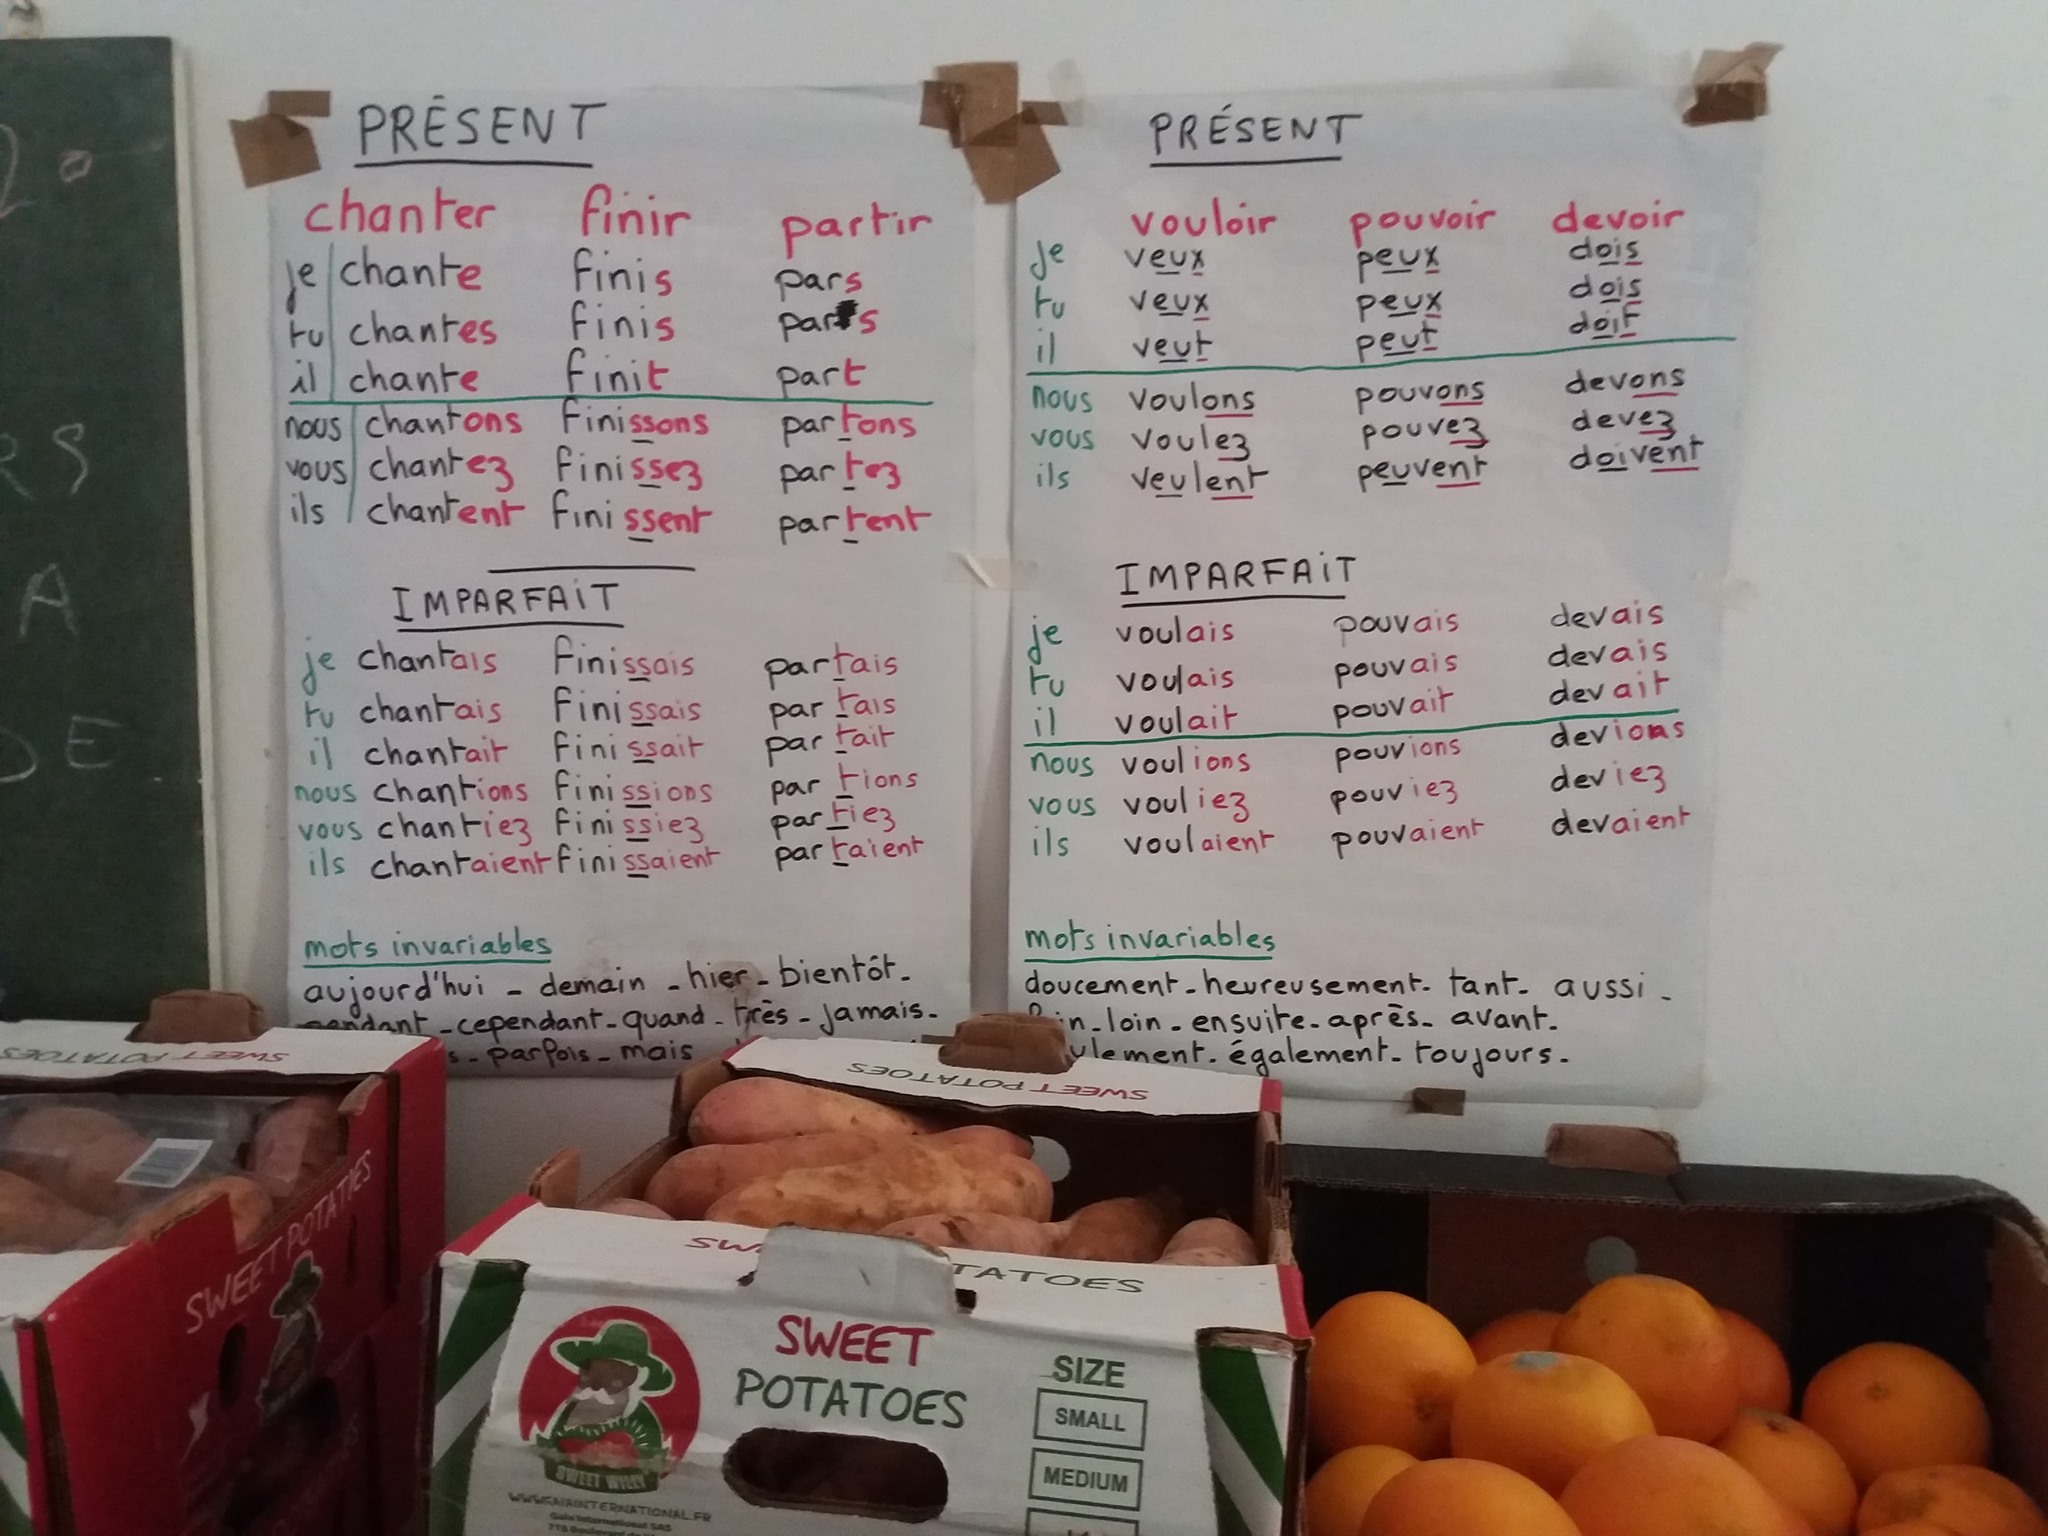 PRÉSENT
chanter finir partir
je chante finis pars
tu chantes finis pars
il chante finit part
nous chantons finissons partons
vous chantez finissez partez
ils chantent finissent partent
IMPARFAIT
je chantais finissais partais
tu chantais finissais partais
il chantait finissait partait
nous chantions finissions partions
vous chantiez finissiez partiez
ils chantaient finissaient partaient
mots invariables
aujourd'hui - demain - hier - bientôt -
pendant - cependant - quand - très - jamais -
- parfois - mais
PRÉSENT
vouloir pouvoir devoir
je veux peux dois
tu veux peux dois
il veut peut doit
nous voulons pouvons devons
vous voulez pouvez devez
ils veulent peuvent doivent
IMPARFAIT
je voulais pouvais devais
tu voulais pouvais devais
il voulait pouvait devait
nous voulions pouvions devions
vous vouliez pouviez deviez
ils voulaient pouvaient devaient
mots invariables
doucement - heureusement - tant - aussi -
loin - ensuite - après - avant -
également - toujours -
RS
A
DE
SWEET POTATOES
SWEET POTATOES
SWEET POTATOES
POTATOES
SWEET
POTATOES
SIZE
SMALL
MEDIUM
SWEET WILLY
WWW.GAIAINTERNATIONAL.FR
Gaia International SAS